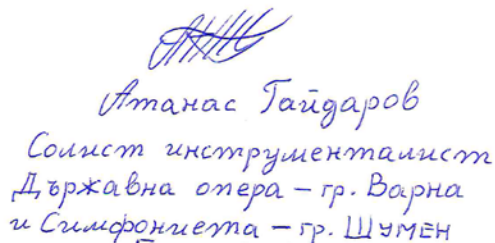 Атанас Гайдаров
Солист инструменталист
Държавна опера – гр. Варна
и Симфониета – гр. ШУМЕН